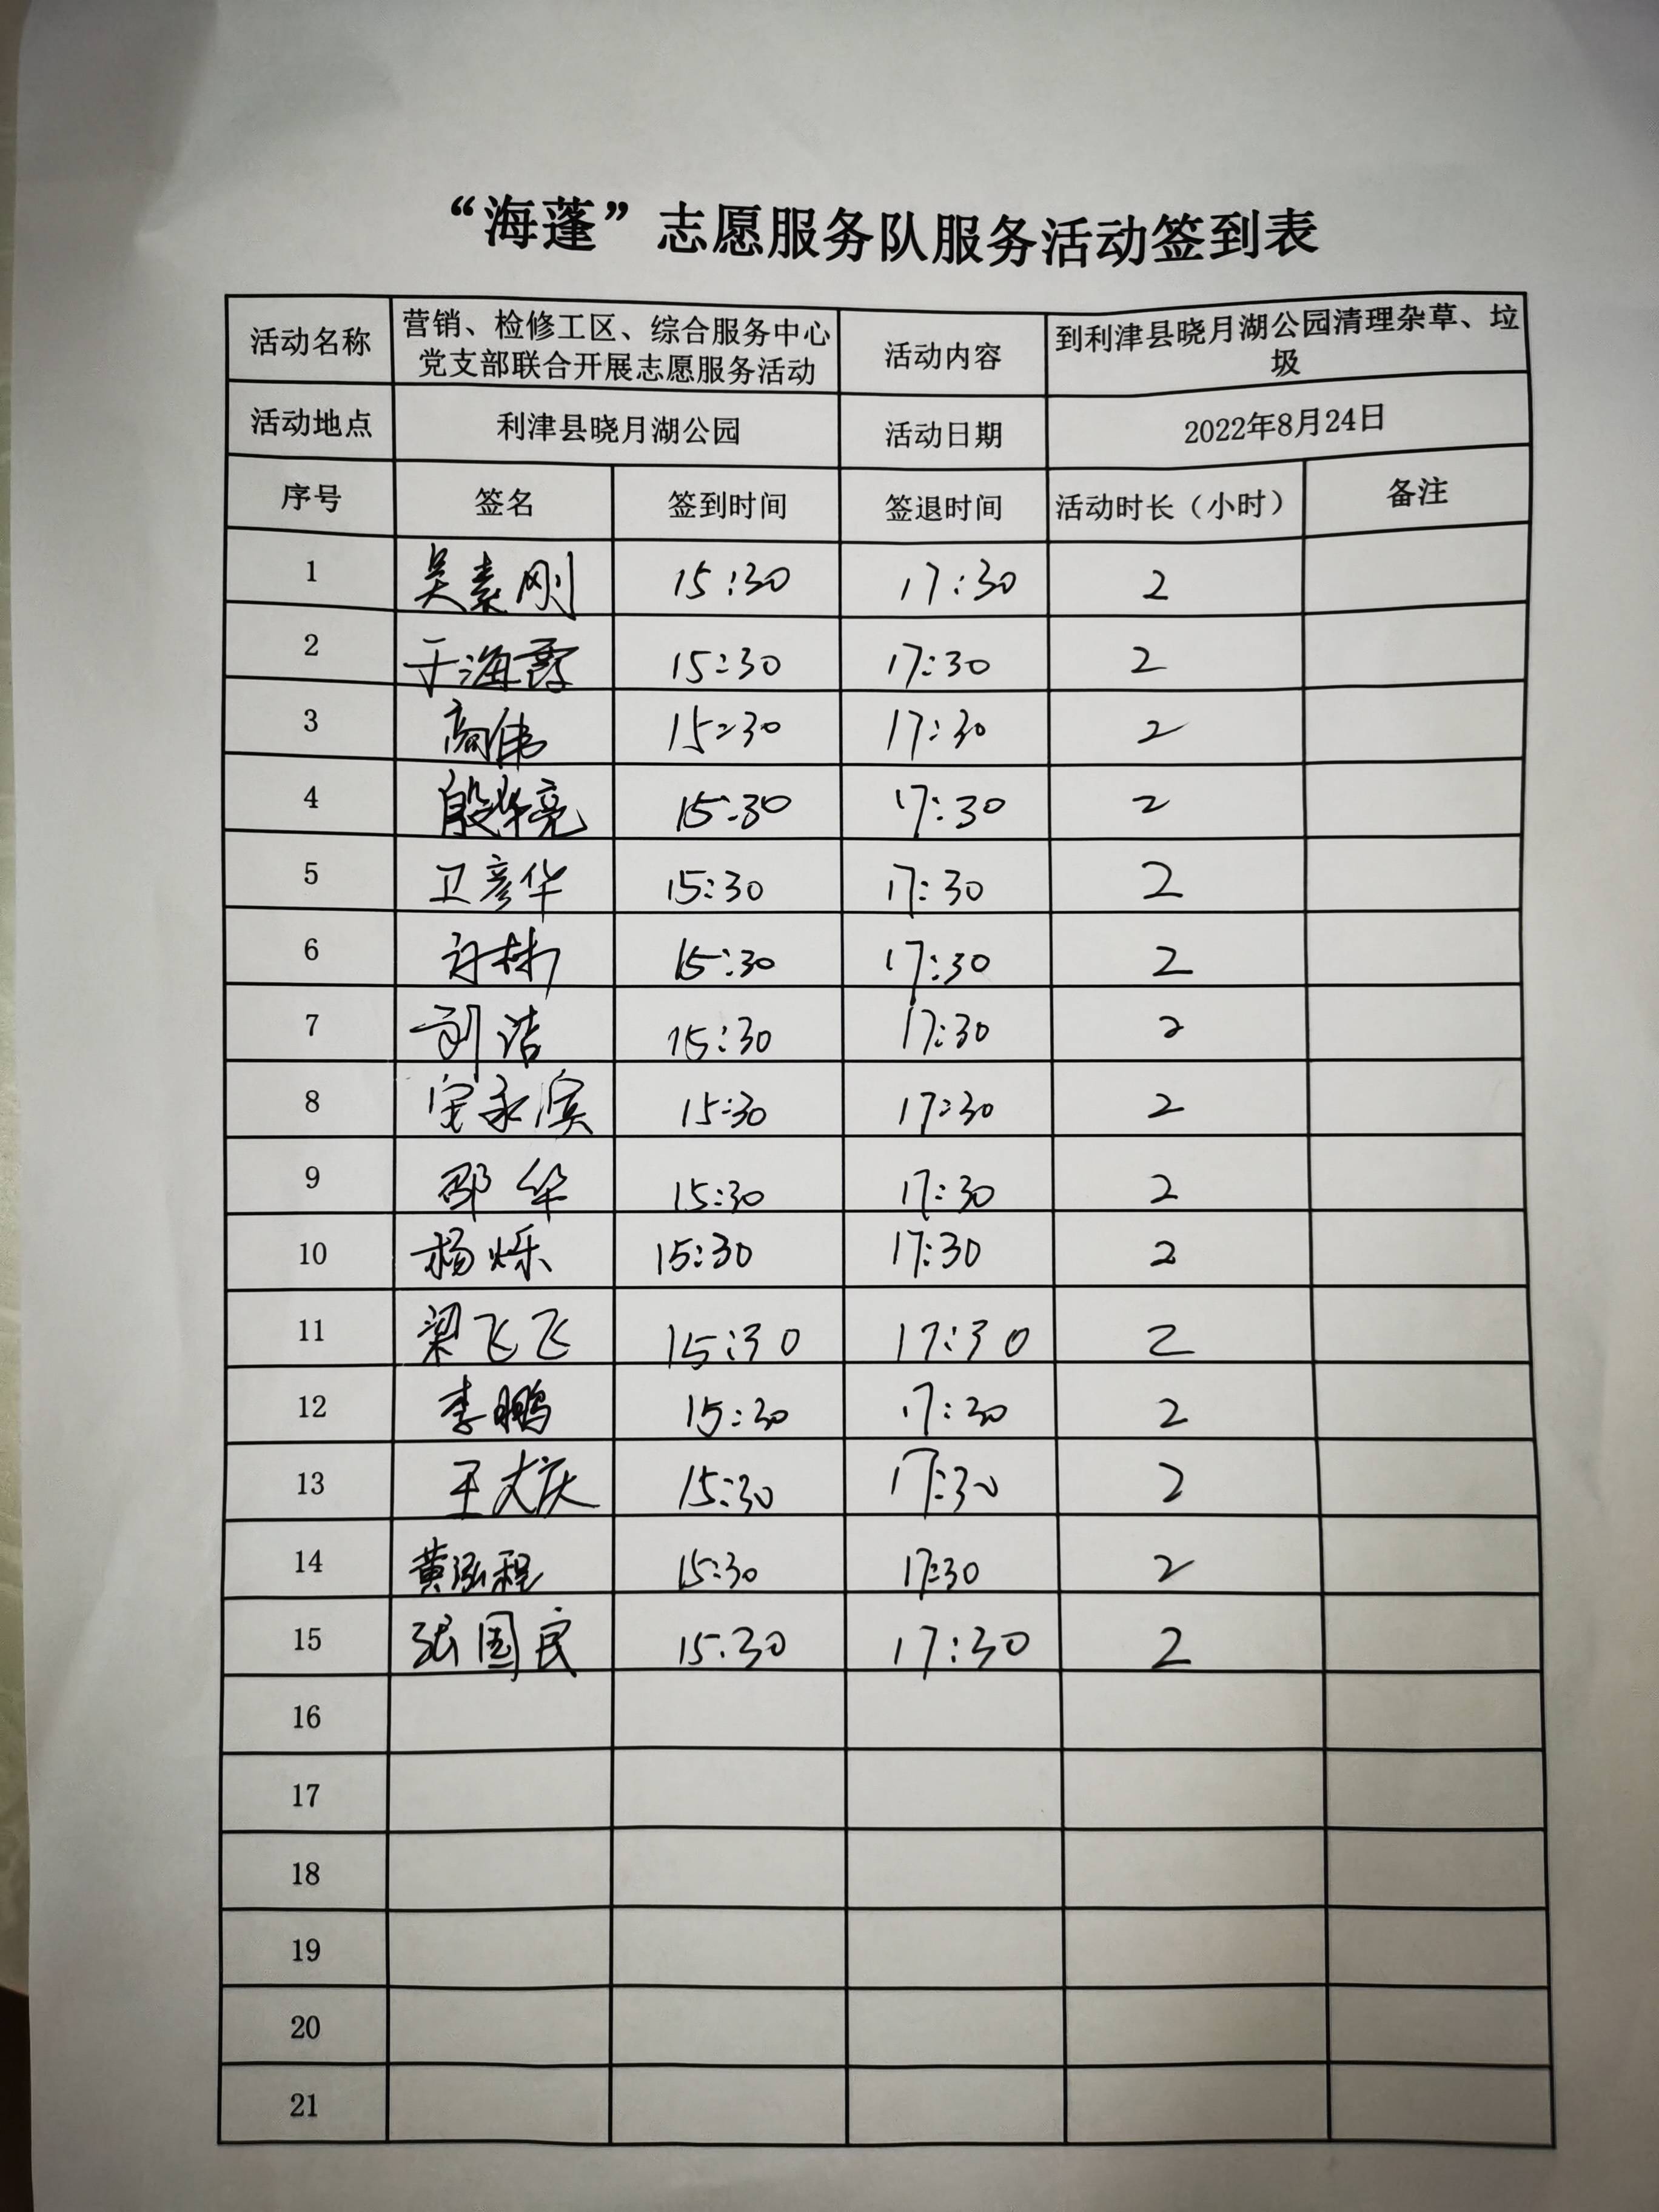 “海蓬”志愿服务队服务活动签到表
活动名称 营销、检修工区、综合服务中心党支部联合开展志愿服务活动 活动内容 到利津县晓月湖公园清理杂草、垃圾
活动地点 利津县晓月湖公园 活动日期 2022年8月24日
序号 签名 签到时间 签退时间 活动时长（小时） 备注
1 吴素刚 15:30 17:30 2
2 于海霞 15:30 17:30 2
3 高伟 15:30 17:30 2
4 15:30 17:30 2
5 卫彦华 15:30 17:30 2
6 许彬 15:30 17:30 2
7 刘洁 15:30 17:30 2
8 15:30 17:30 2
9 邵华 15:30 17:30 2
10 杨烁 15:30 17:30 2
11 梁飞飞 15:30 17:30 2
12 李鹏 15:30 17:30 2
13 王大庆 15:30 17:30 2
14 黄泓程 15:30 17:30 2
15 张国民 15:30 17:30 2
16
17
18
19
20
21